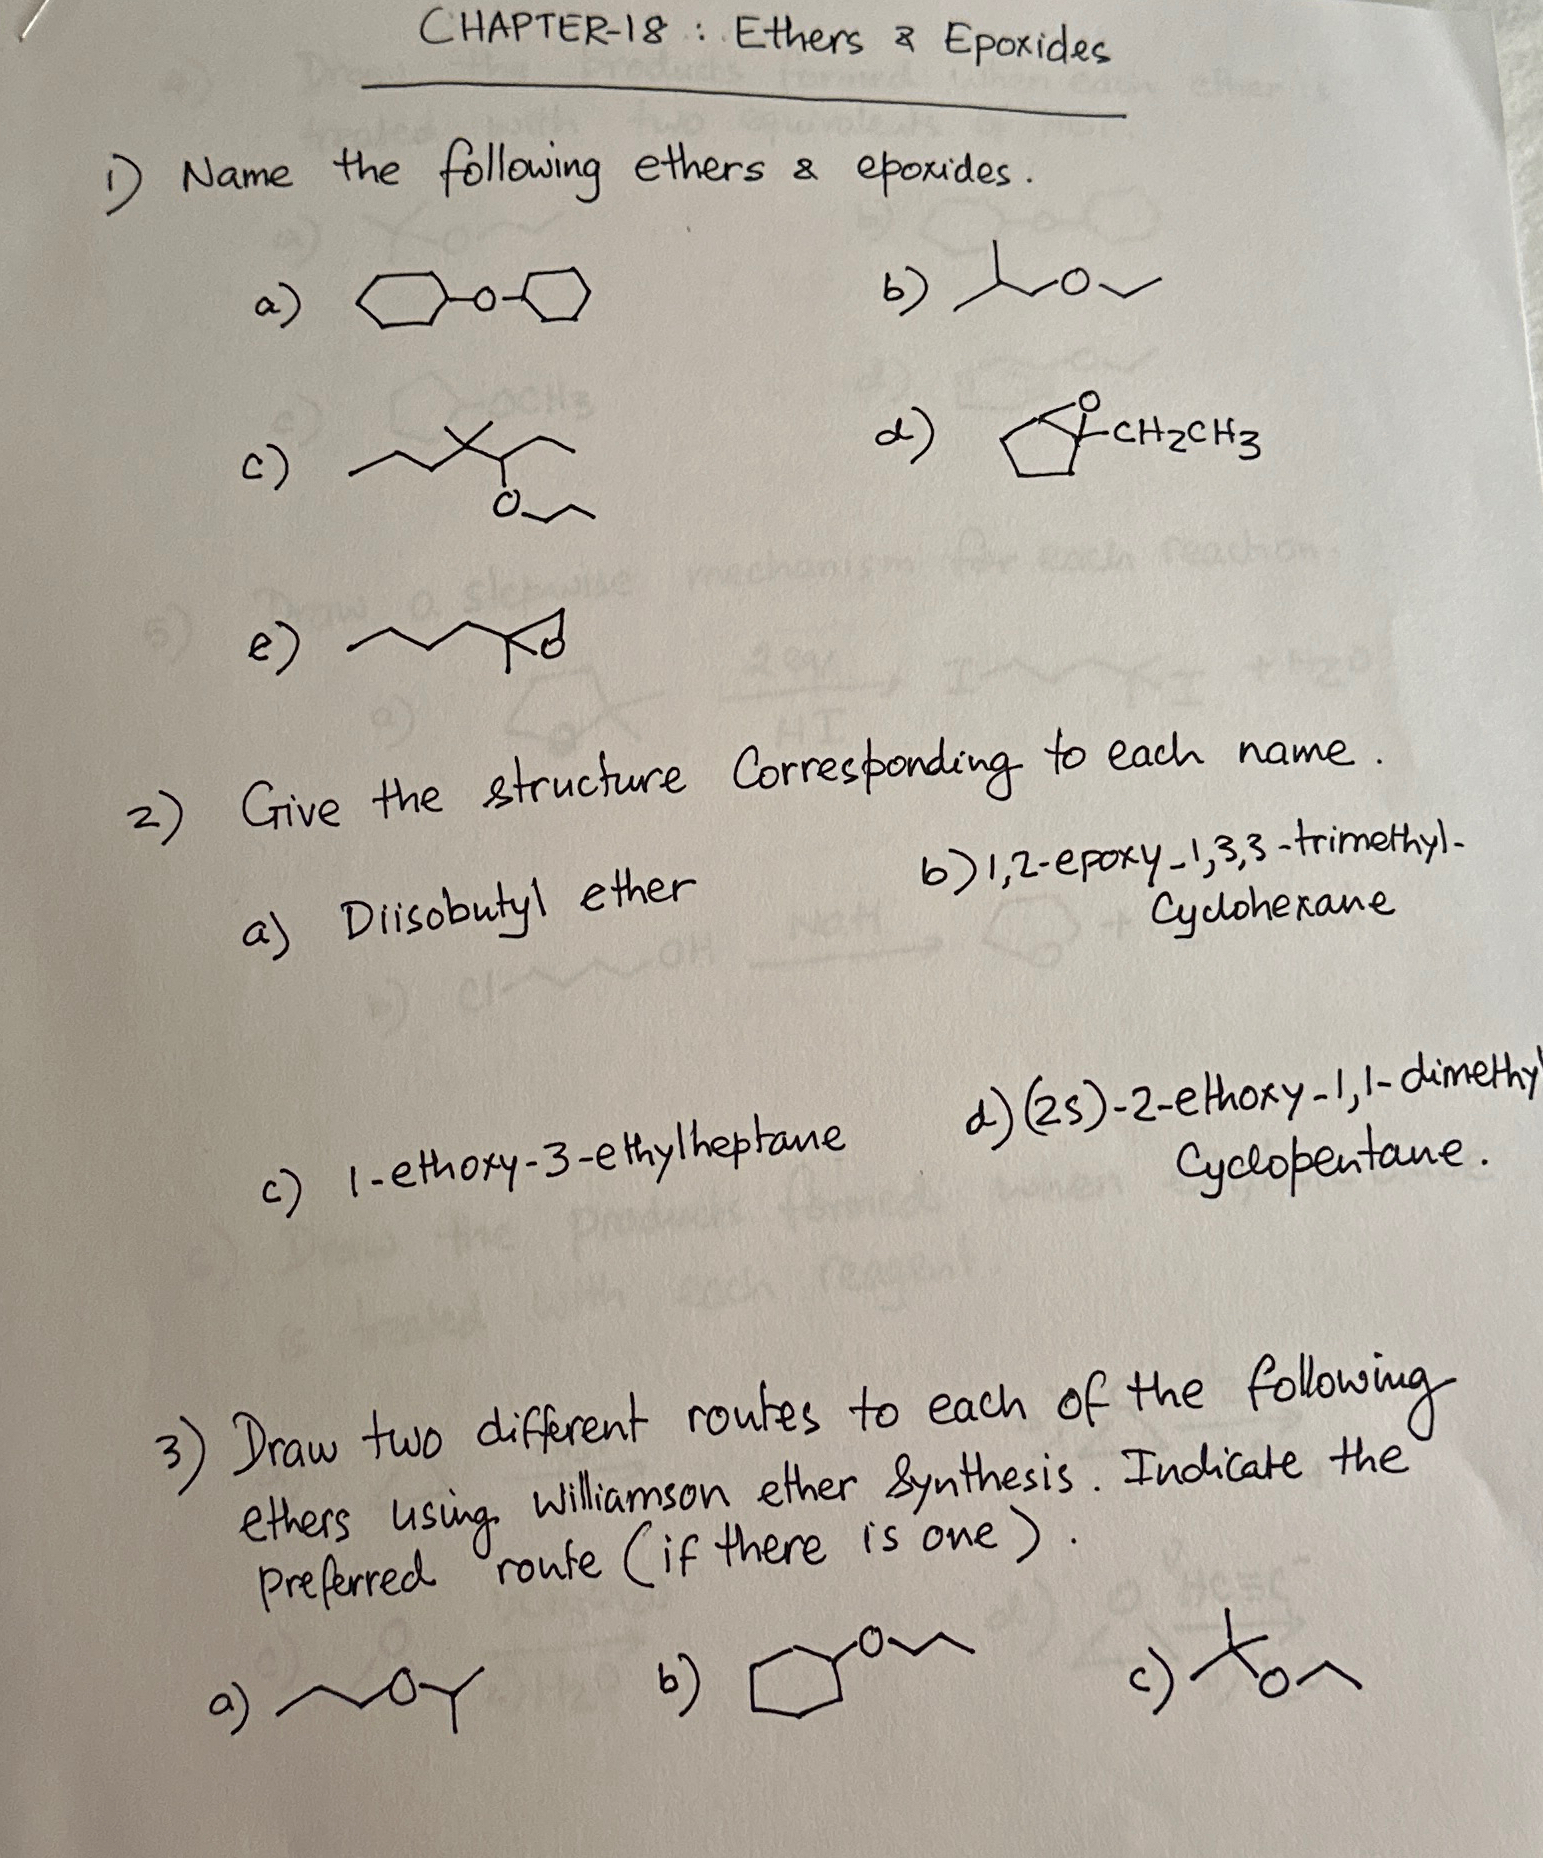 CHAPTER-18 : Ethers & Epoxides
1) Name the following ethers & epoxides.
a) O
b) O
c) O
d) O CH2CH3
e) O
2) Give the structure Corresponding to each name.
a) Diisobutyl ether
b) 1,2-epoxy-1,3,3-trimethyl-
Cyclohexane
c) 1-ethoxy-3-ethylheptane
d) (2s)-2-ethoxy-1,1-dimethyl
Cyclopentane.
3) Draw two different routes to each of the following
ethers using williamson ether Synthesis. Indicate the
preferred route (if there is one).
a) O
b) O
c) O